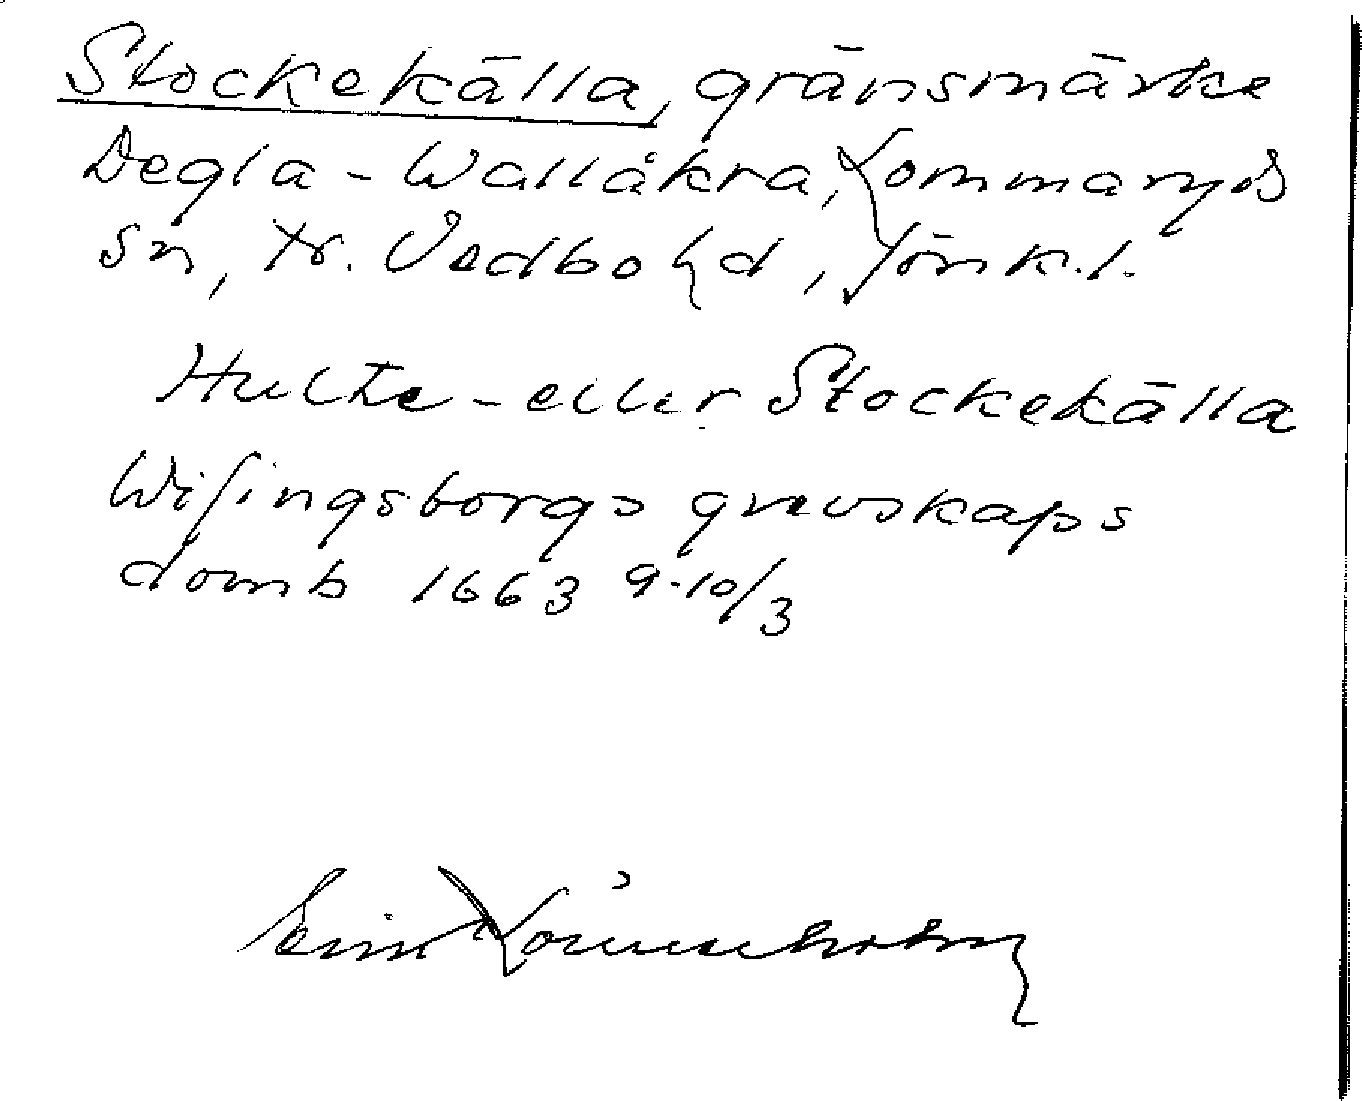 Stockekälla, gränsmärke
Degla - Wallåkra, Lommaryds
sn, N. Vedbo hd, Jönk.l.
Hulte - eller Stockekälla
Wisingsborgs grevskaps
domb 1663 9-10/3